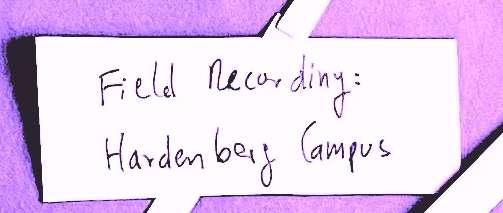 Field Recording:
Hardenberg Campus